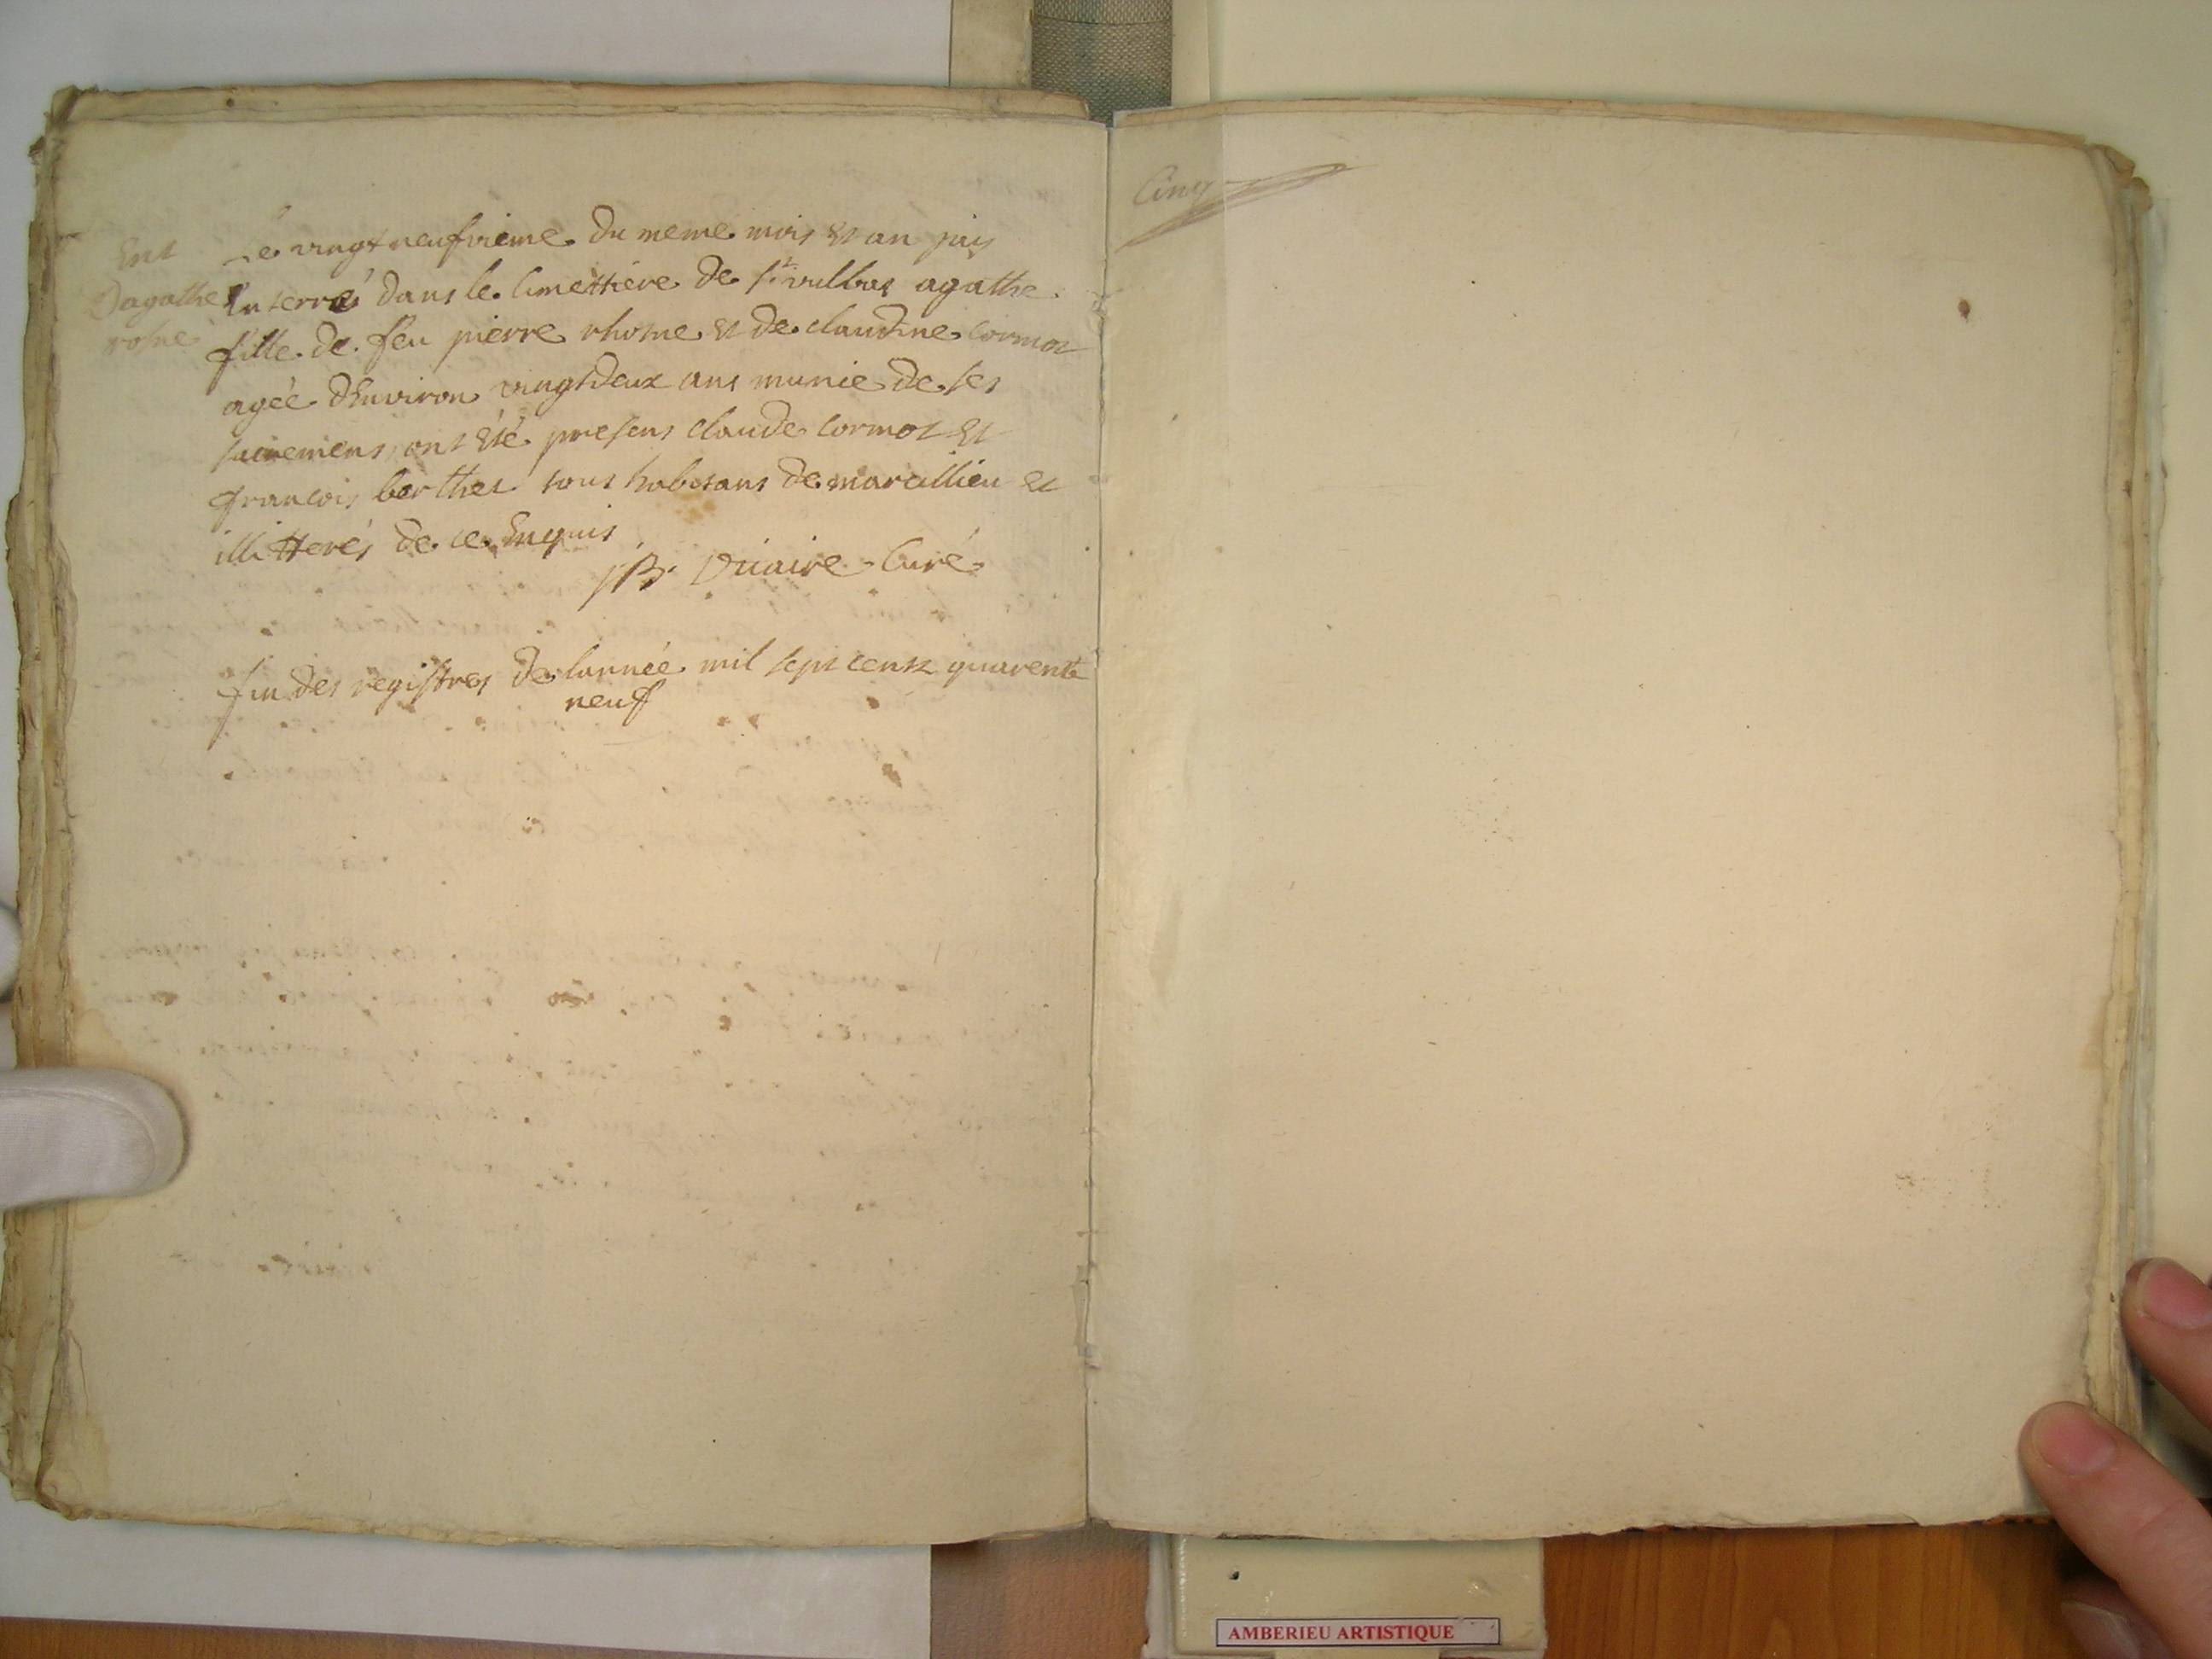 Ent
Dagathe
rosne
Le vingt neufvieme du meme mois et an jay
Enterré dans le Cimettiére de st vulbas agathe
fille de feu pierre rhosne et de claudine Cormot
agée dEnviron vingtdeux ans munie de ses
sacremens, ont Eté presens claude Cormot Et
francois berthet tous habitans de marcillieu et
illitterés de ce Enquis
JB. Dciaire Curé
fin des registres de lannée mil sept cents quarente
neuf
Cinq
AMBERIEU ARTISTIQUE